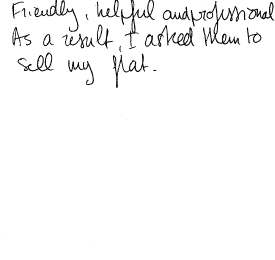 Friendly, helpful and professional
As a result, I asked them to
sell my flat.